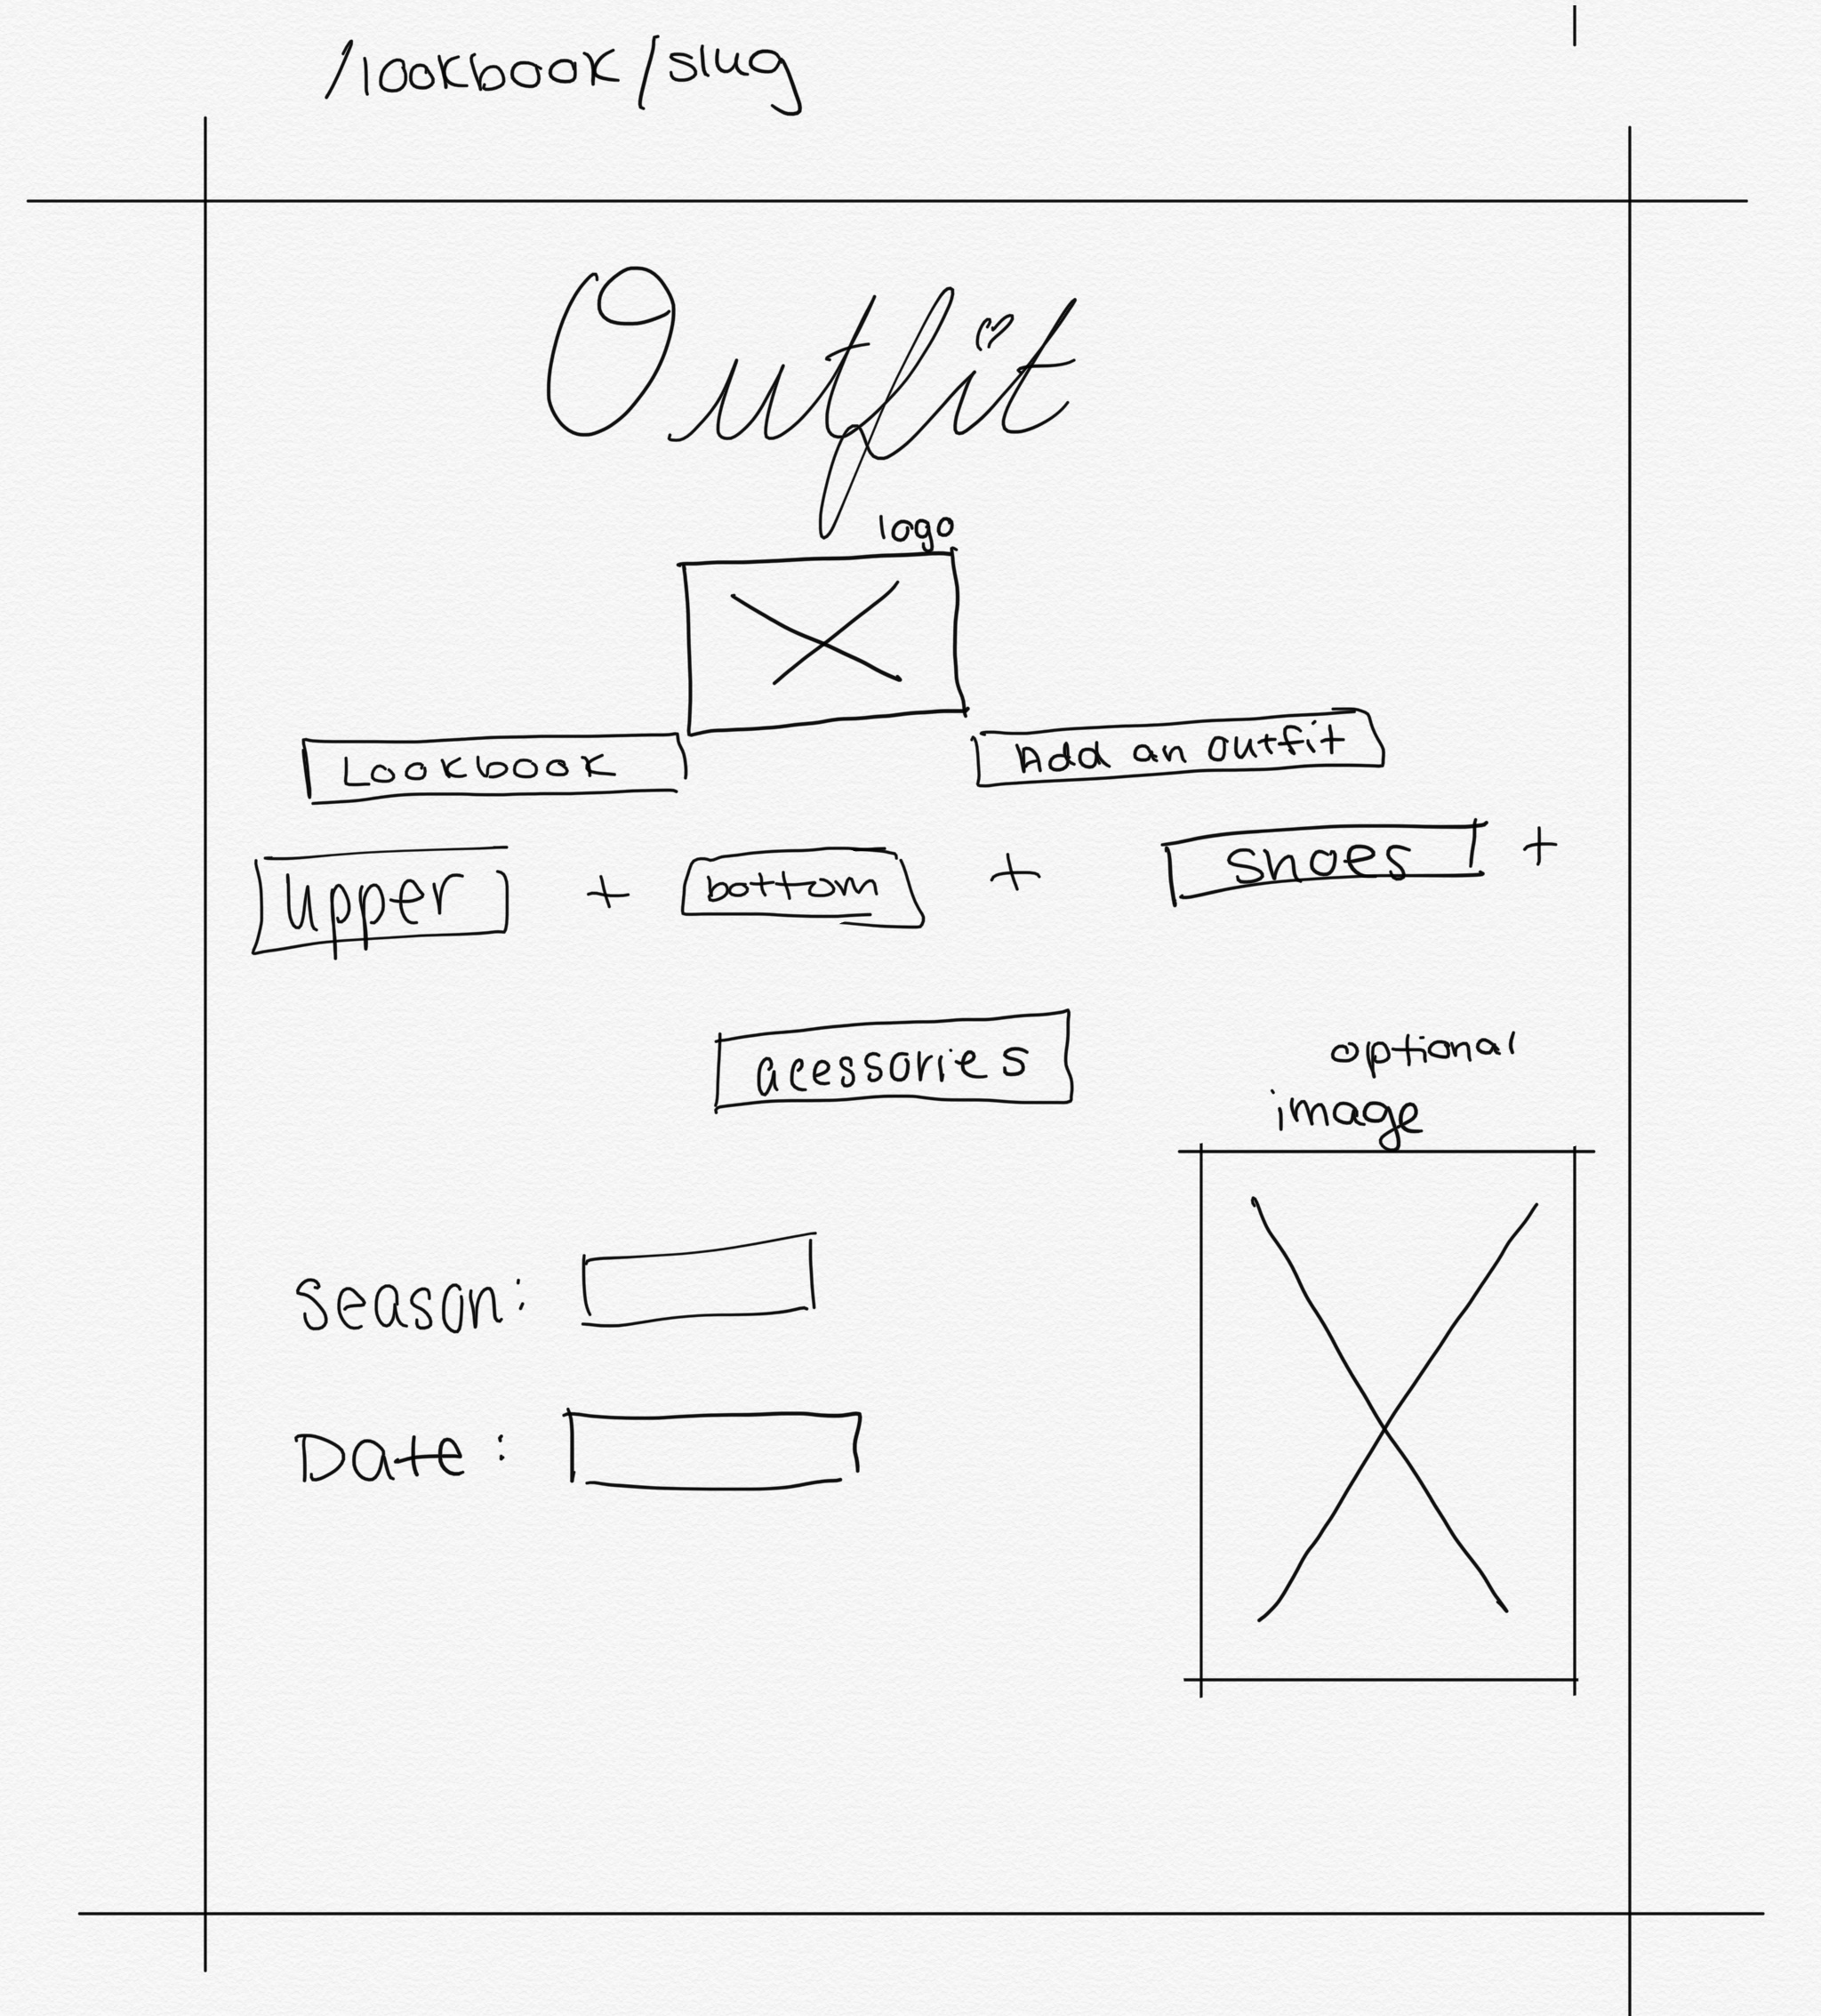 /lookbook/slug
Outfit
logo
Lookbook
Add an outfit
upper + bottom + shoes +
acessories
optional
image
Season:
Date: